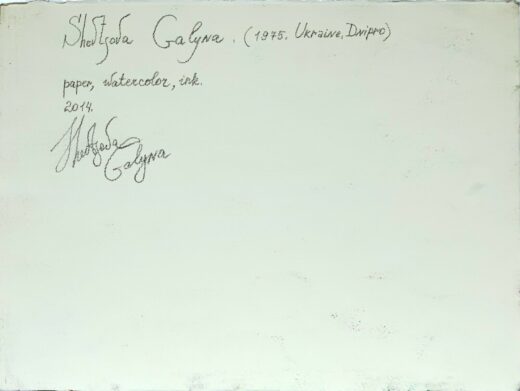 Shovtzova Galyna. (1975. Ukraine, Dnipro)
paper, watercolor, ink.
2014.
Galyna